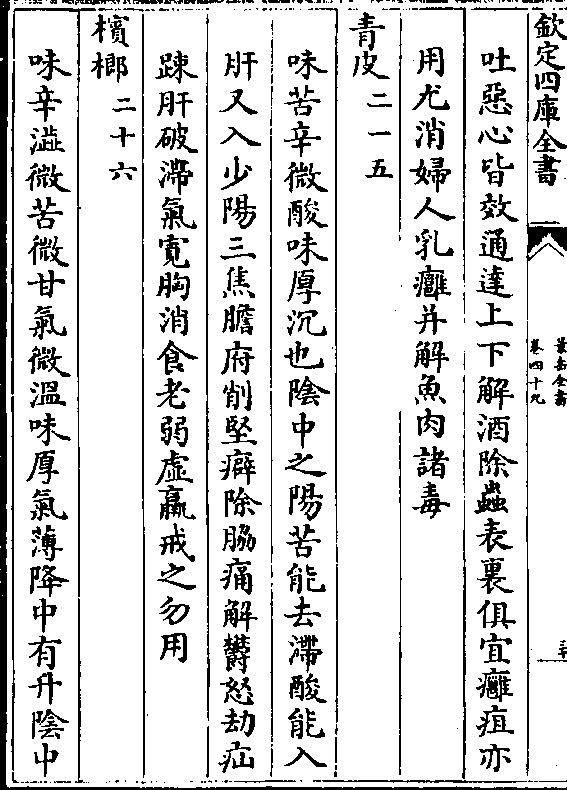 欽定四庫全書
景岳全書
卷四十九
吐惡心皆效通達上下解酒除蟲表裏俱宜癰疽亦
用尤消婦人乳癰并解魚肉諸毒
青皮二一五
味苦辛微酸味厚沉也陰中之陽苦能去滯酸能入
肝又入少陽三焦膽府削堅癖除脇痛解鬱怒劫疝
踈肝破滯氣寛胸消食老弱虛羸戒之勿用
檳榔二十六
味辛澁微苦微甘氣微溫味厚氣薄降中有升陰中